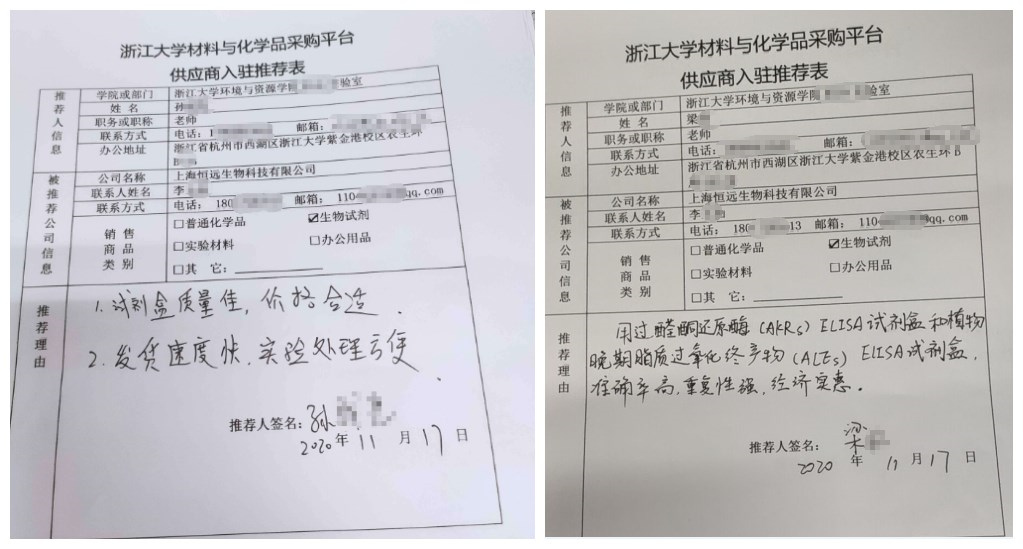 浙江大学材料与化学品采购平台
供应商入驻推荐表
推荐人信息
学院或部门 浙江大学环境与资源学院 验室
姓名 孙
职务或职称 老师
联系方式 电话：1 邮箱：
办公地址 浙江省杭州市西湖区浙江大学紫金港校区农生环
B
被推荐公司信息
公司名称 上海恒远生物科技有限公司
联系人姓名 李
联系方式 电话：180 邮箱：110 qq.com
销售商品类别
□普通化学品 ☑生物试剂
□实验材料 □办公用品
□其 它：
推荐理由
1.试剂盒质量佳，价格合适．
2.发货速度快，实验处理方便．
推荐人签名：孙
2020年11月17日
浙江大学材料与化学品采购平台
供应商入驻推荐表
推荐人信息
学院或部门 浙江大学环境与资源学院 验室
姓名 梁
职务或职称 老师
联系方式 电话： 邮箱：
办公地址 浙江省杭州市西湖区浙江大学紫金港校区农生环 B
被推荐公司信息
公司名称 上海恒远生物科技有限公司
联系人姓名 李
联系方式 电话：180 13 邮箱：110 qq.com
销售商品类别
□普通化学品 ☑生物试剂
□实验材料 □办公用品
□其 它：
推荐理由
用过醛酮还原酶（AKRs）ELISA试剂盒和植物
晚期脂质过氧化终产物（ALEs）ELISA试剂盒，
准确率高，重复性强，经济实惠。
推荐人签名：梁
2020 年 11 月 17 日